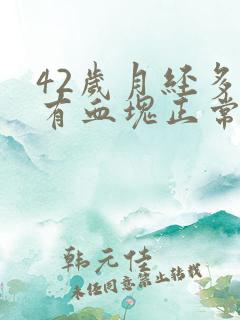 42歲月经多
有血塊正常
韩元佳
未经同意禁止转载